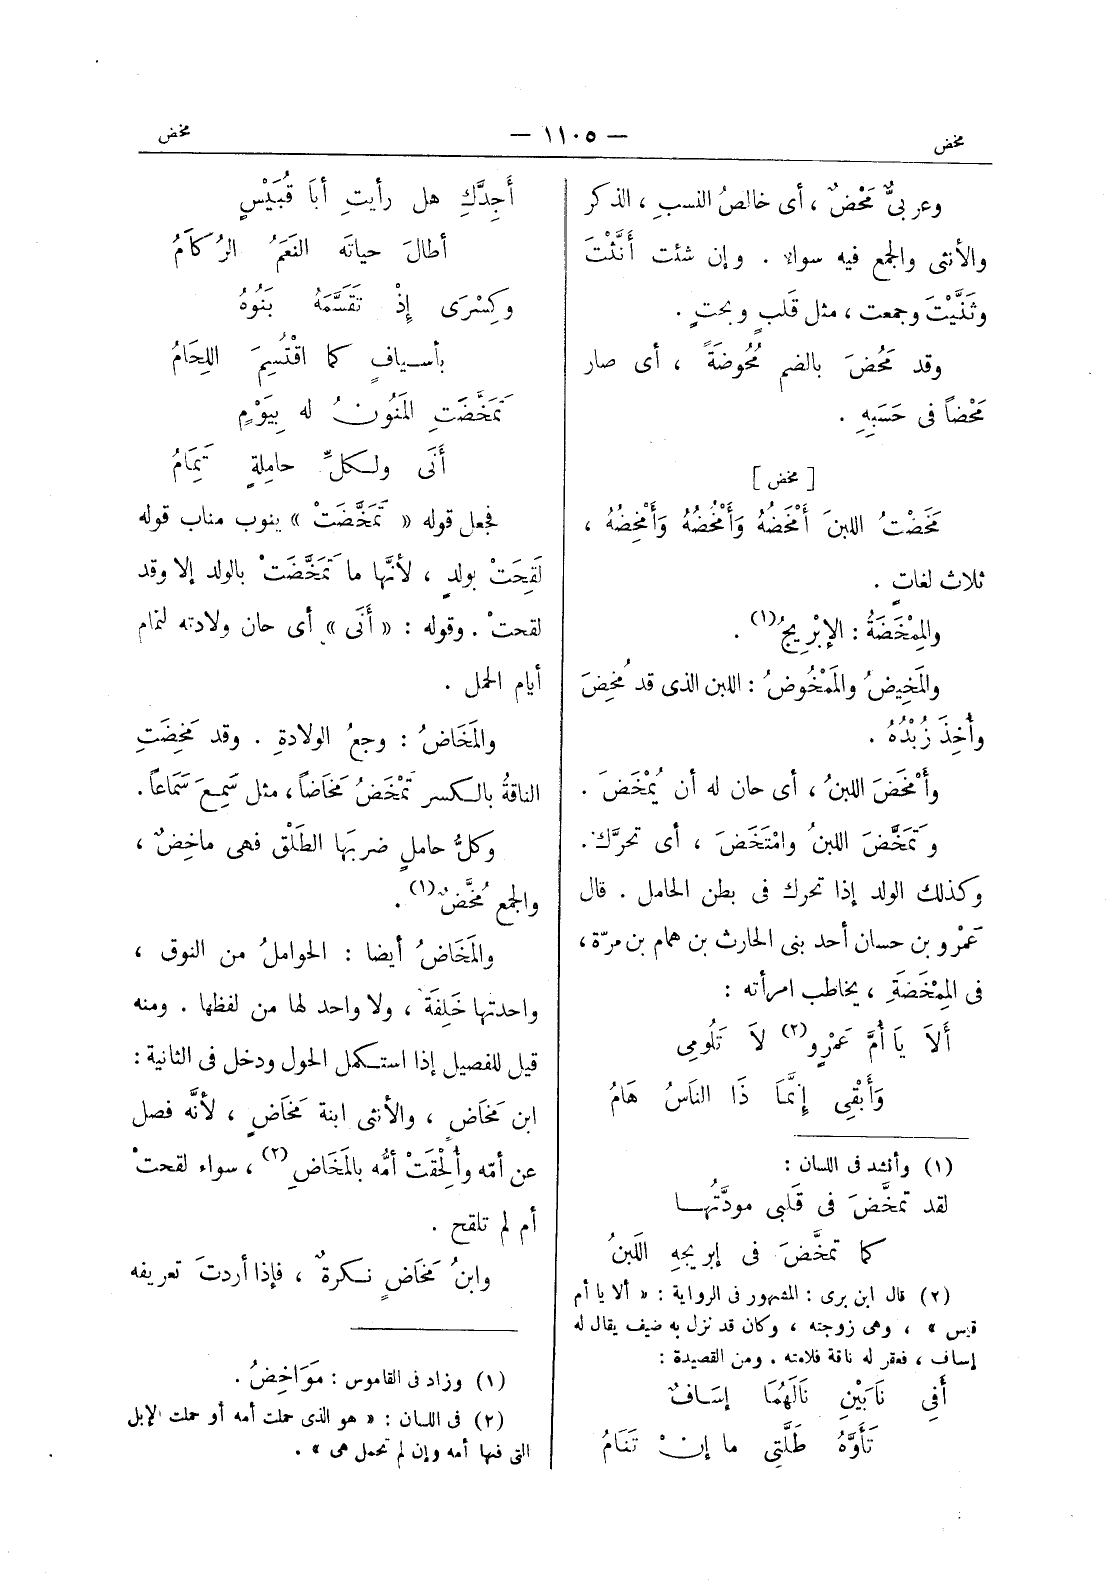 مخض
— ١١٠٥ —
مخض
وعربىٌّ مَحْضٌ ، أى خالصُ النسبِ ، الذكر
والأنثى والجمع فيه سواء . وإن شئت أَنَّثْتَ
وثَنَّيْتَ وجمعت ، مثل قَلبٍ وبحتٍ .
وقد مَحُضَ بالضم مُحُوضَةً ، أى صار
مَحْضاً فى حَسَبِهِ .
[ مخض ]
مَخَضْتُ اللبنَ أَمْخَضُهُ وَأَمْخُضُهُ وَأَمْخِضُهُ ،
ثلاث لغاتٍ .
والمِمْخَضَةُ : الإبْرِيجُ(١) .
والمَخِيضُ والمَمْخُوضُ : اللبن الذى قد مُخِضَ
وأُخِذَ زُبْدُهُ .
وأَمْخَضَ اللبنُ ، أى حان له أن يُمْخَضَ .
وتَمَخَّضَ اللبنُ وامْتَخَضَ ، أى تحرَّك .
وكذلك الولد إذا تحرك فى بطن الحامل . قال
عَمْرو بن حسان أحد بنى الحارث بن همام بن مرّة ،
فى المِمْخَضَةِ ، يخاطب امرأته :
أَلاَ يَا أُمَّ عَمْرٍو(٢) لاَ تَلُومِى
وَأَبْقِى إِنَّمَا ذَا النَّاسُ هَامُ
(١) وأنشد فى اللسان :
لقد تمخَّضَ فى قَلبى مودَّتُهــا
كما تمخَّضَ فى إبريجه اللبَنُ
(٢) قال ابن برى : المشهور فى الرواية : « ألا يا أم
قيس » ، وهى زوجته ، وكان قد نزل به ضيف يقال له
إساف ، فعقر له ناقة فلامته . ومن القصيدة :
أَفِى نَابَيْنِ نَالَهُمَا إسَافٌ
تَأَوَّهُ طَلَّتِى ما إنْ تَنَامُ
أَجِدَّكِ هل رأيتِ أبَا قُبَيْسٍ
أطالَ حياتَه النَعَمُ الرُكَامُ
وكِسْرَى إِذْ تَقَسَّمَهُ بَنُوهُ
بأسيافٍ كما اقْتُسِمَ اللِحَامُ
تَمَخَّضَتِ المَنُونُ له بِيَوْمٍ
أَنَى ولكلِّ حاملةٍ تِمَامُ
فجعل قوله « تَمَخَّضَتْ » ينوب مناب قوله
لَقِحَتْ بولدٍ ، لأنَّها ما تَمَخَّضَتْ بالولد إلا وقد
لقحتْ . وقوله : « أَنَى » أى حان ولادته لتمام
أيام الحمل .
والمَخَاضُ : وجعُ الولادةِ . وقد مَخِضَتِ
الناقةُ بالكسر تَمْخَضُ مَخَاضاً ، مثل سَمِعَ سَمَاعاً .
وكلُّ حاملٍ ضربَها الطَلْق فهى ماخِضٌ ،
والجمع مُخَّضٌ(١) .
والمَخَاضُ أيضا : الحواملُ من النوق ،
واحدتها خَلِفَة ، ولا واحد لها من لفظها . ومنه
قيل للفصيل إذا استكمل الحول ودخل فى الثانية :
ابن مَخَاضٍ ، والأنثى ابنة مَخَاضٍ ، لأنَّه فصل
عن أمّه وأُلْحِقَتْ أمُّه بالمَخَاضِ(٢) ، سواء لقحتْ
أم لم تلقح .
وابنُ مَخَاضٍ نكرةٌ ، فإذا أردتَ تعريفه
(١) وزاد فى القاموس : مَوَاخِضُ .
(٢) فى اللسان : « هو الذى حملت أمه أو حملت الإبل
التى فيها أمه وإن لم تحمل هى » .